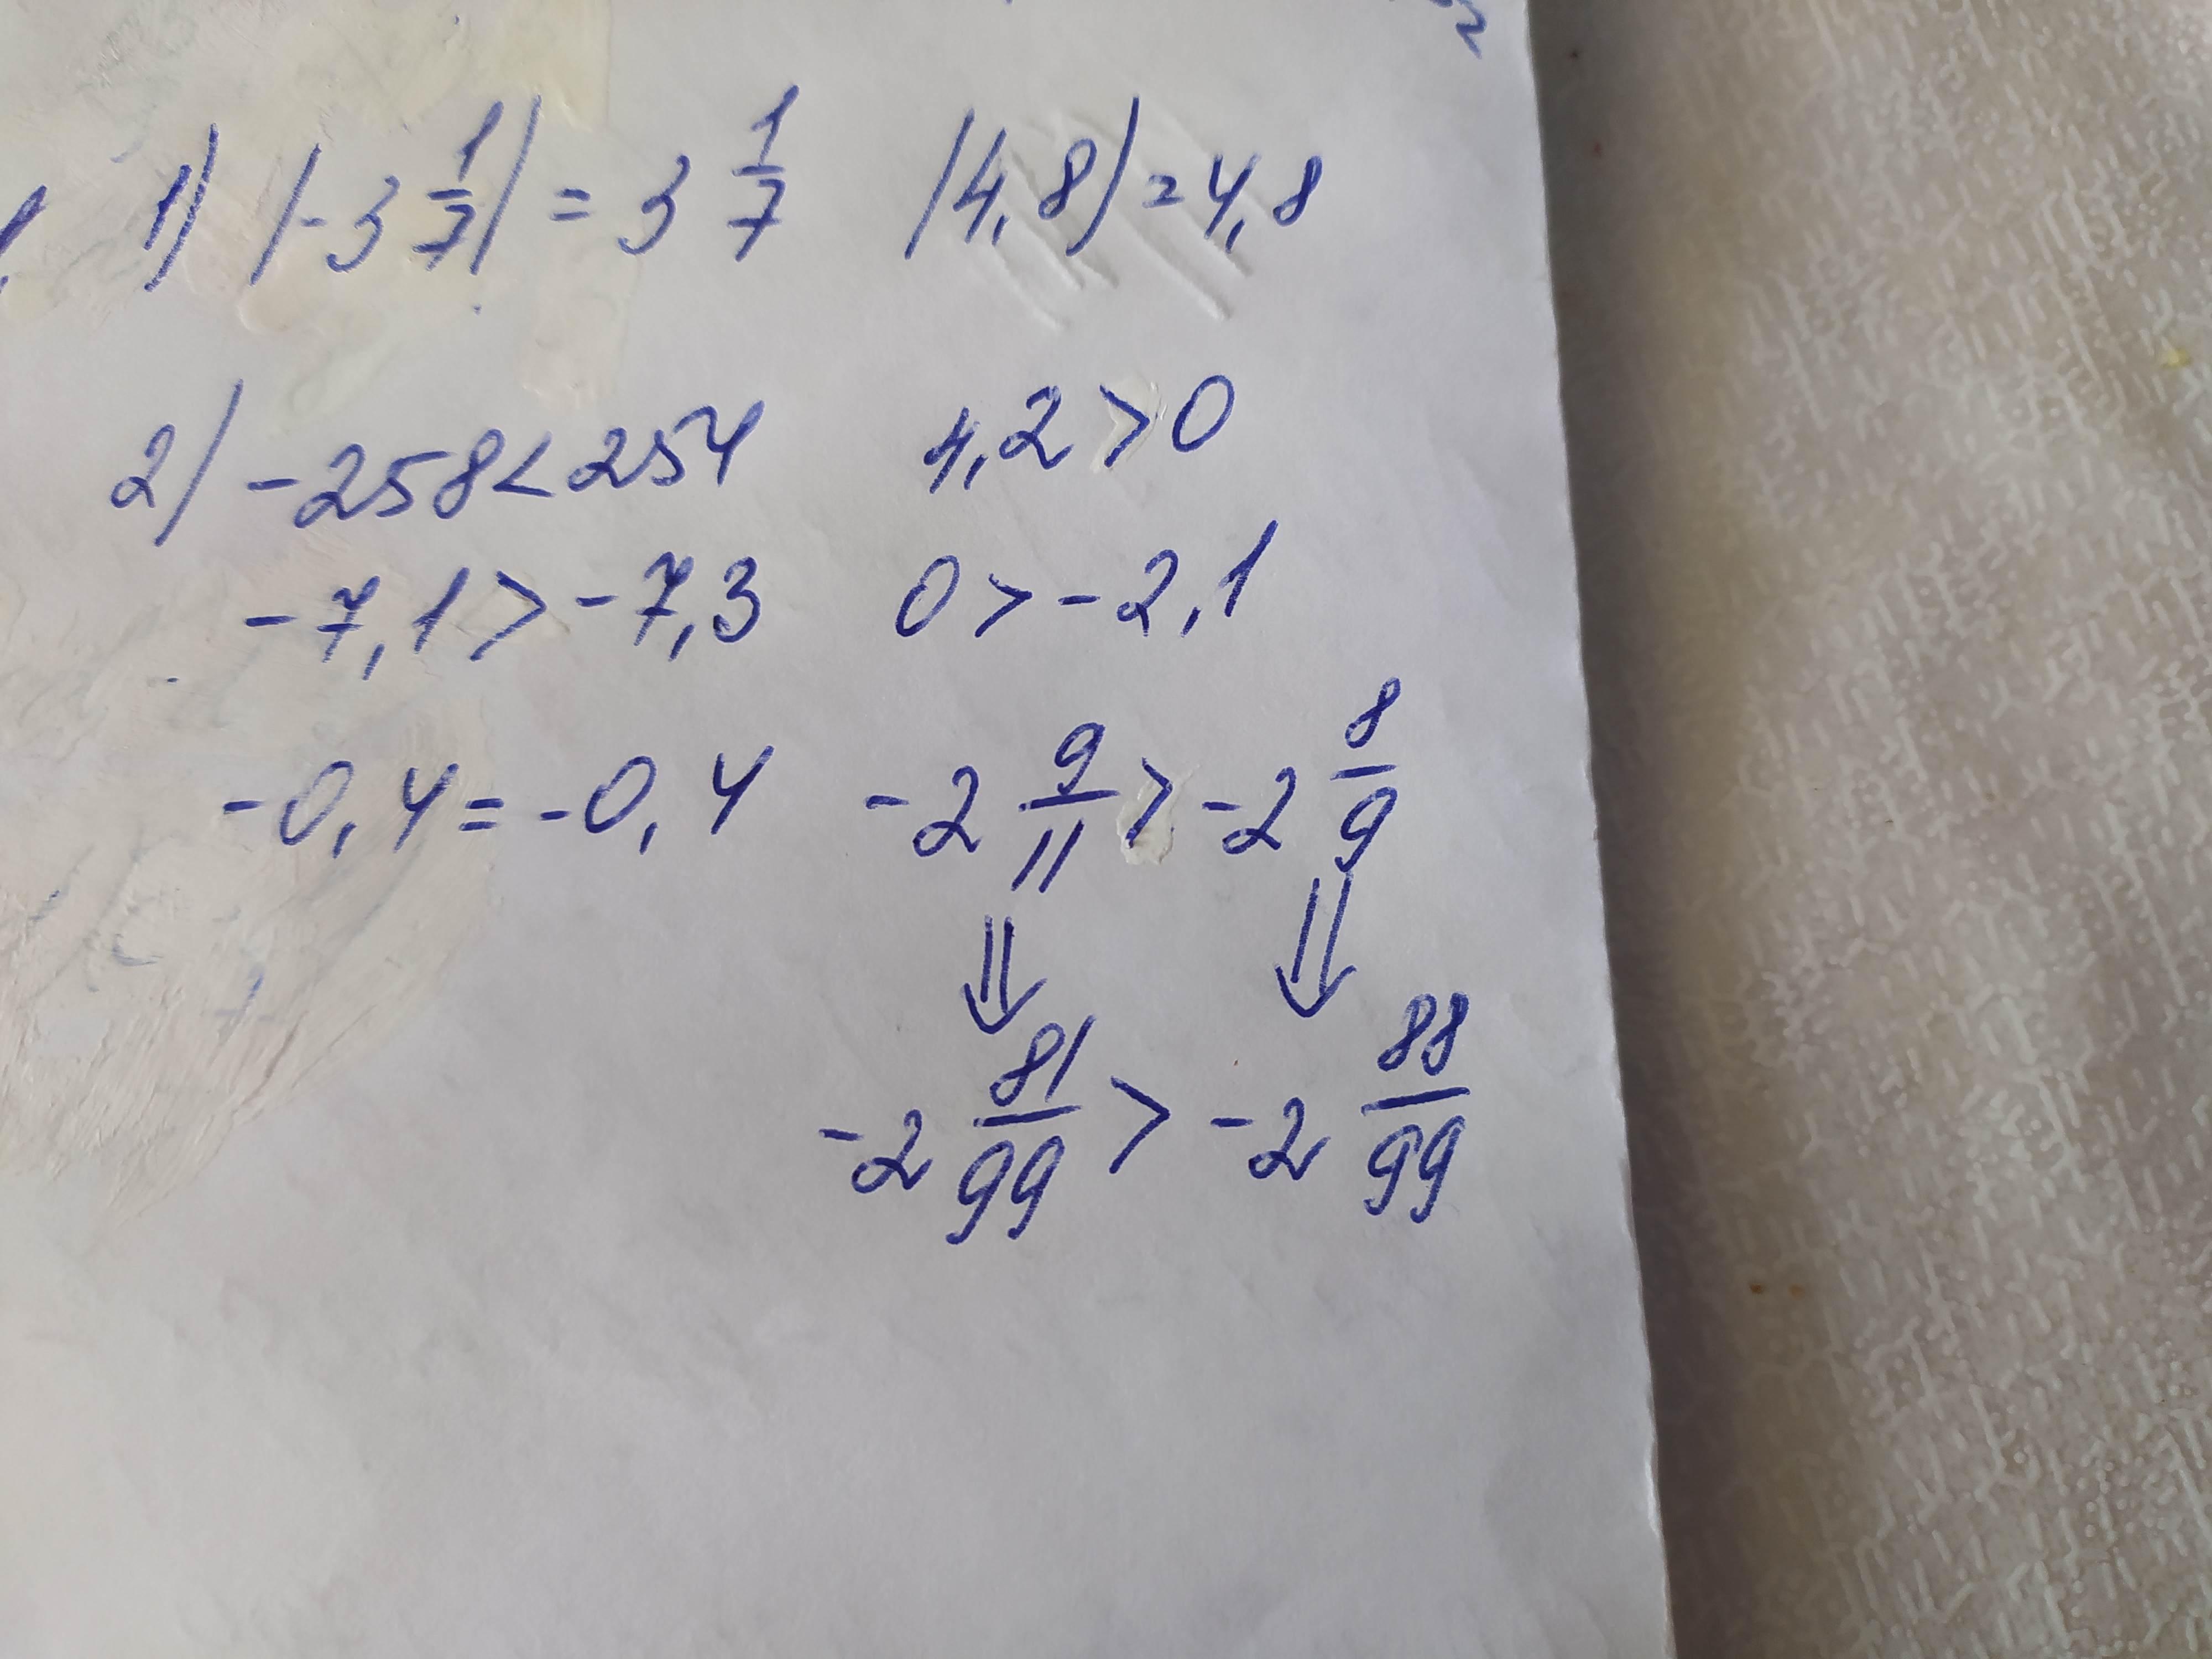 1) |-3 1/7| = 3 1/7 |4,8| = 4,8
2) -258 < 254 4,2 > 0
-7,1 > -7,3 0 > -2,1
-0,4 = -0,4 -2 9/11 > -2 8/9
⇓ ⇓
-2 81/99 > -2 88/99